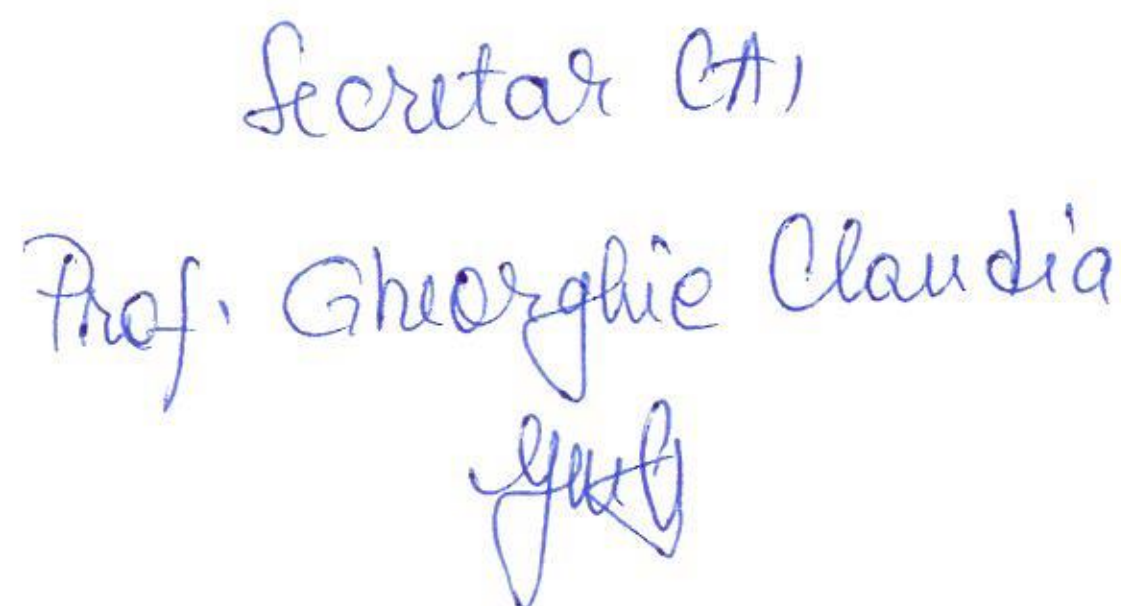 Secretar CA,
Prof. Gheorghie Claudia